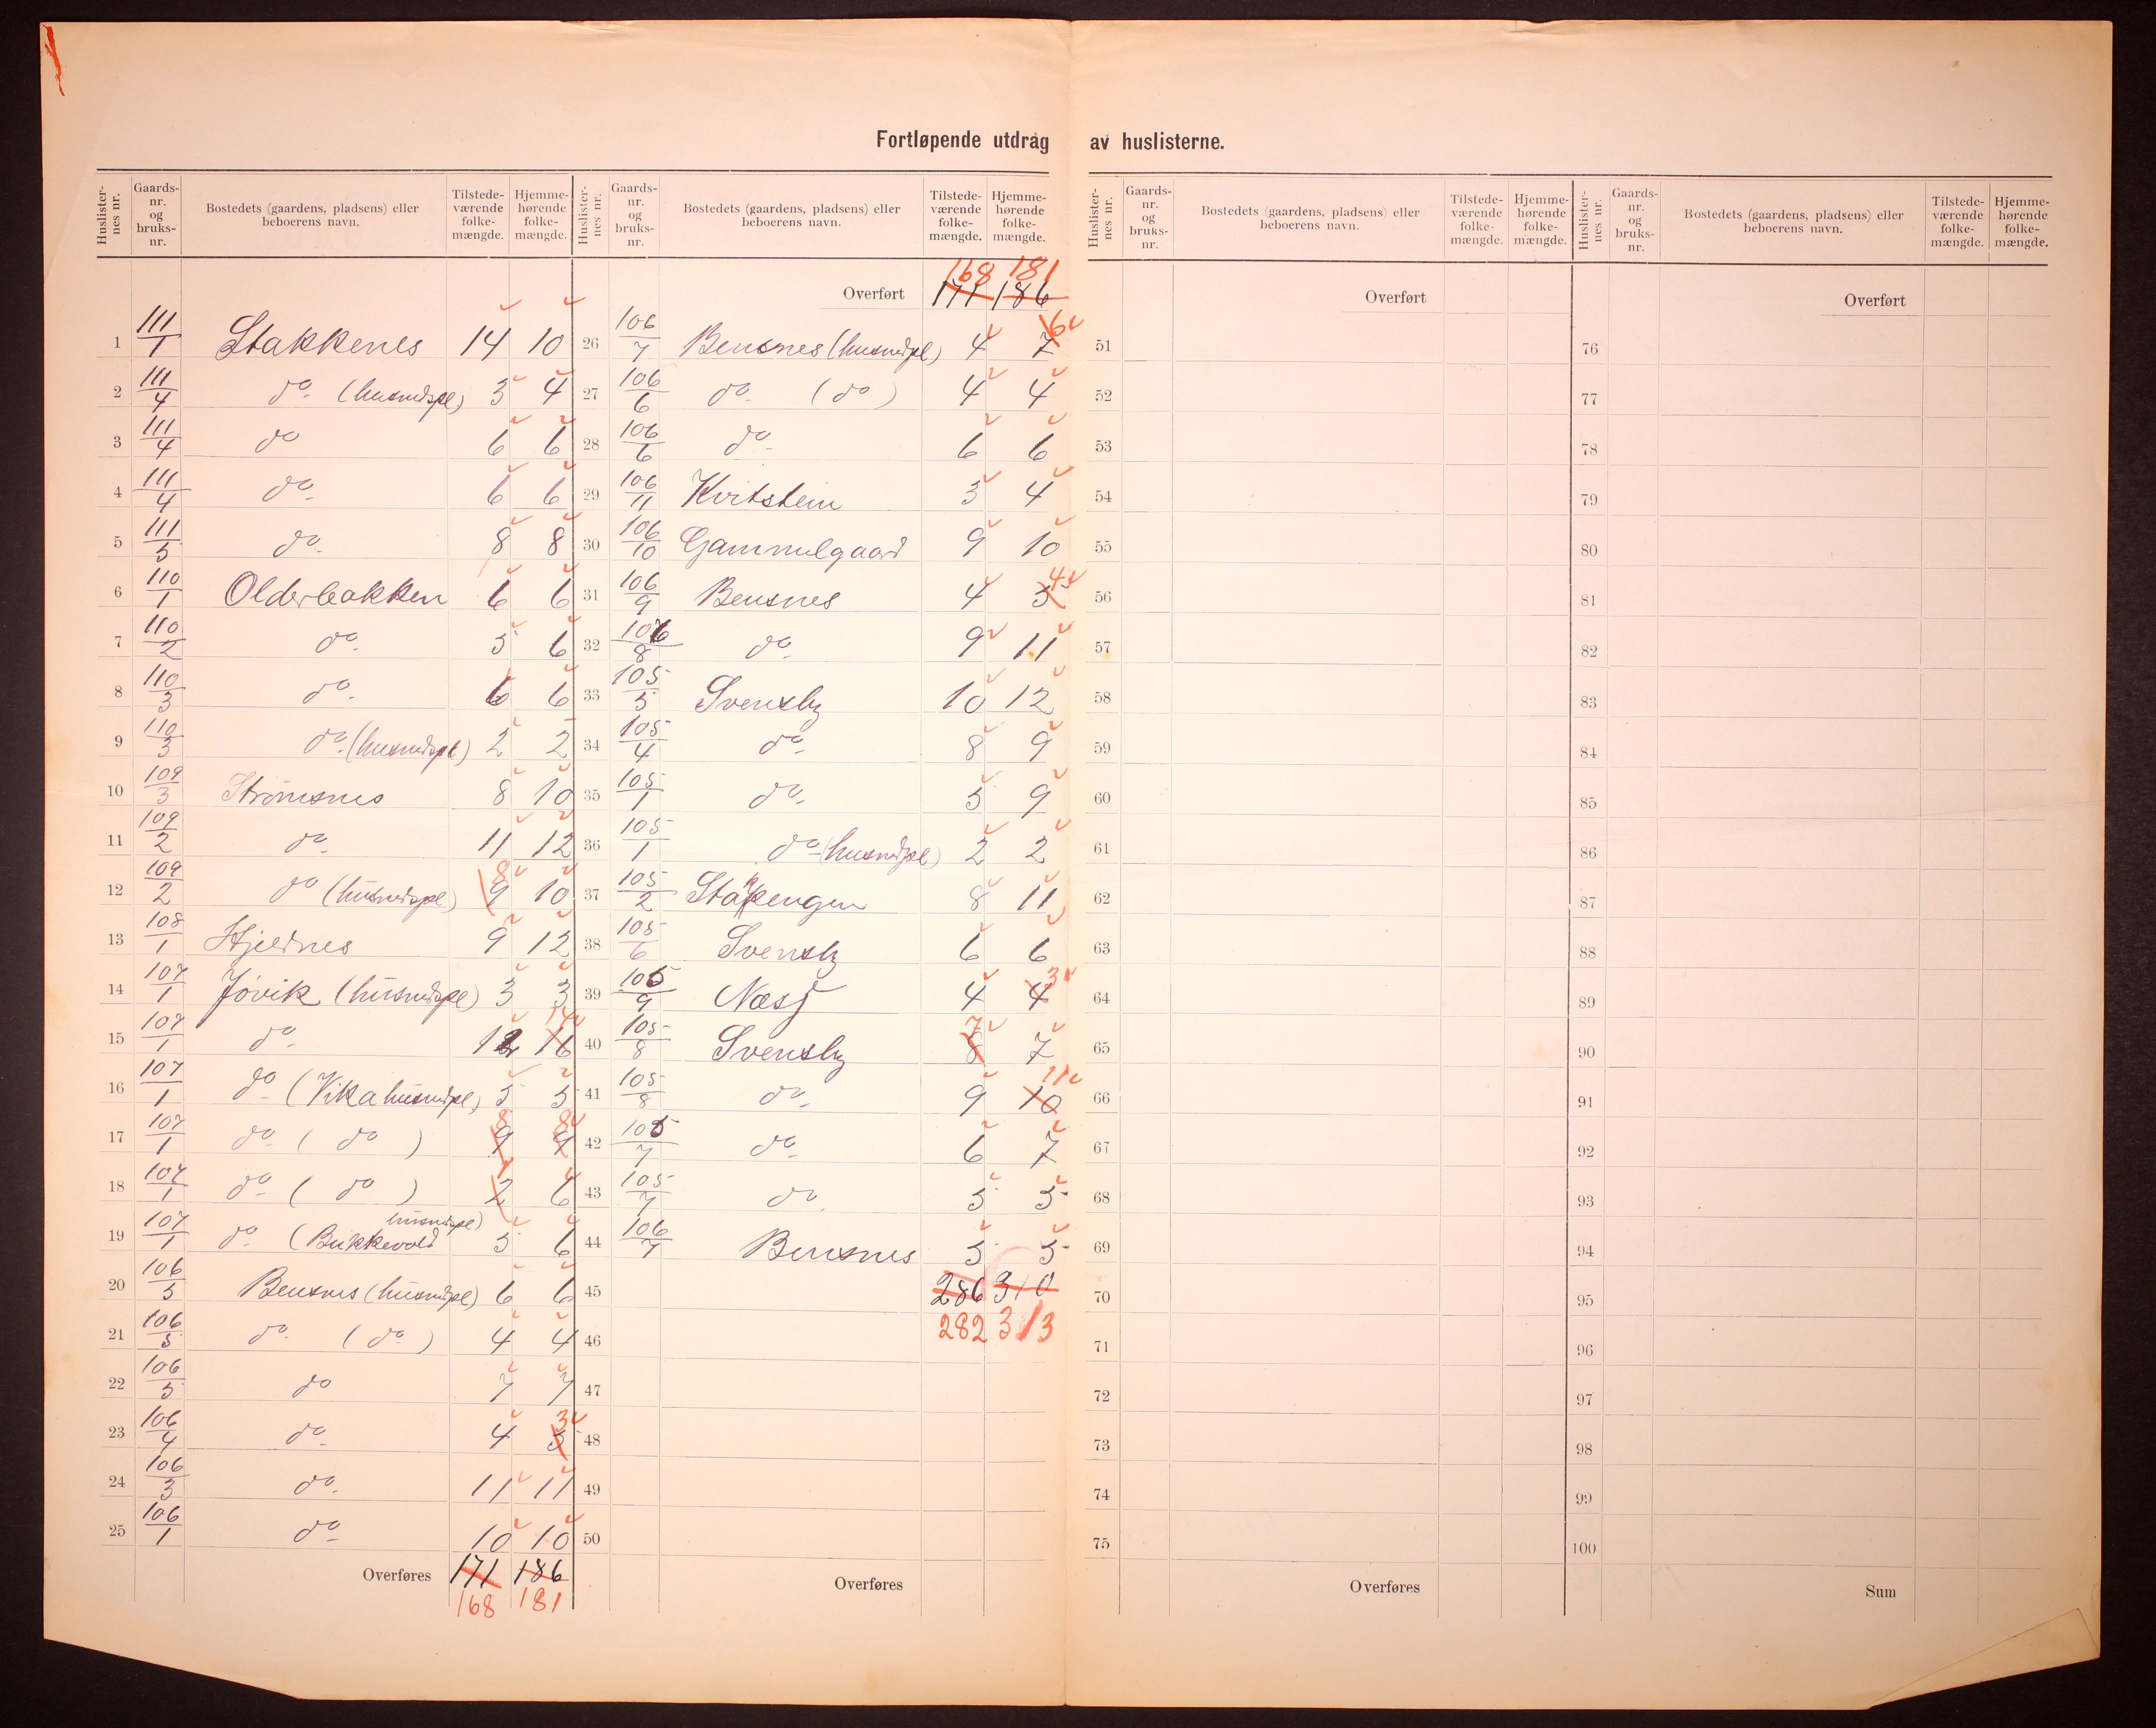 Fortløpende utdrag av huslisterne.
Huslister-nes nr. Gaards-nr. og bruks-nr. Bostedets (gaardens, pladsens) eller beboerens navn. Tilstede-værende folke-mængde. Hjemme-hørende folke-mængde.
1 111/1 Stakkenes 14 10
2 111/4 do (husmdspl) 3 4
3 111/4 do 6 6
4 111/4 do 6 6
5 111/5 do 8 8
6 110/1 Olderbakken 6 6
7 110/2 do 5 6
8 110/3 do 6 6
9 110/3 do (husmdspl) 2 2
10 109/3 Strømsnes 8 10
11 109/2 do 11 12
12 109/2 do (husmdspl) 9 8 10
13 108/1 Hjellnes 9 12
14 107/1 Jøvik (husmdspl) 3 3
15 107/1 do 12 16 14
16 107/1 do (Vika husmdspl) 5 5
17 107/1 do (do) 9 8 9 8
18 107/1 do (do) 2 6
19 107/1 do (Bukkevold husmdspl) 5 6
20 106/5 Bensnes (husmdspl) 6 6
21 106/5 do (do) 4 4
22 106/5 do 7 7
23 106/4 do 4 5 3
24 106/3 do 11 11
25 106/1 do 10 10
Overføres 171 186
168 181
Huslister-nes nr. Gaards-nr. og bruks-nr. Bostedets (gaardens, pladsens) eller beboerens navn. Tilstede-værende folke-mængde. Hjemme-hørende folke-mængde.
168 181
Overført 171 186
26 106/7 Bensnes (husmdpl) 4 7 6
27 106/6 do (do) 4 4
28 106/6 do 6 6
29 106/11 Kvitstein 3 4
30 106/10 Gammelgaard 9 10
31 106/9 Bensnes 4 3 4
32 106/8 do 9 11
33 105/5 Svensby 10 12
34 105/4 do 8 9
35 105/1 do 5 9
36 105/1 do (husmdpl) 2 2
37 105/2 8 11
38 105/6 Svensby 6 6
39 105/9 Næss 4 4 3
40 105/8 Svensby 8 7 7
41 105/8 do 9 10 11
42 105/7 do 6 7
43 105/7 do 5 5
44 106/7 Bensnes 5 5
45 286 310
46 282 313
47
48
49
50
Overføres
Huslister-nes nr. Gaards-nr. og bruks-nr. Bostedets (gaardens, pladsens) eller beboerens navn. Tilstede-værende folke-mængde. Hjemme-hørende folke-mængde.
Overført
51
52
53
54
55
56
57
58
59
60
61
62
63
64
65
66
67
68
69
70
71
72
73
74
75
Overføres
Huslister-nes nr. Gaards-nr. og bruks-nr. Bostedets (gaardens, pladsens) eller beboerens navn. Tilstede-værende folke-mængde. Hjemme-hørende folke-mængde.
Overført
76
77
78
79
80
81
82
83
84
85
86
87
88
89
90
91
92
93
94
95
96
97
98
99
100
Sum